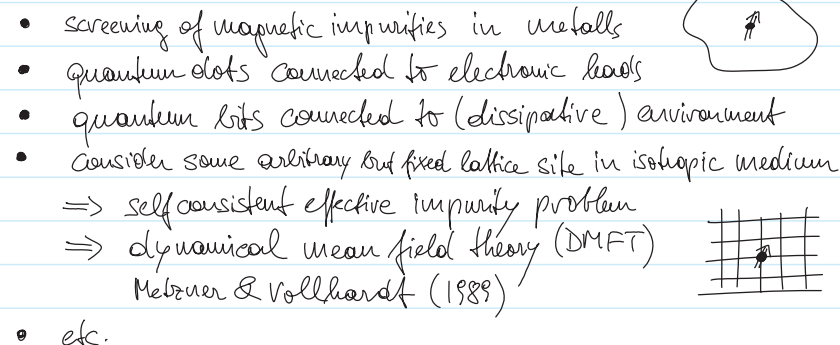 • screening of magnetic impurities in metalls
• quantum dots connected to electronic leads
• quantum bits connected to (dissipative) environment
• consider some arbitrary but fixed lattice site in isotropic medium
=> selfconsistent effective impurity problem
=> dynamical mean field theory (DMFT)
Metzner & Vollhardt (1989)
• etc.